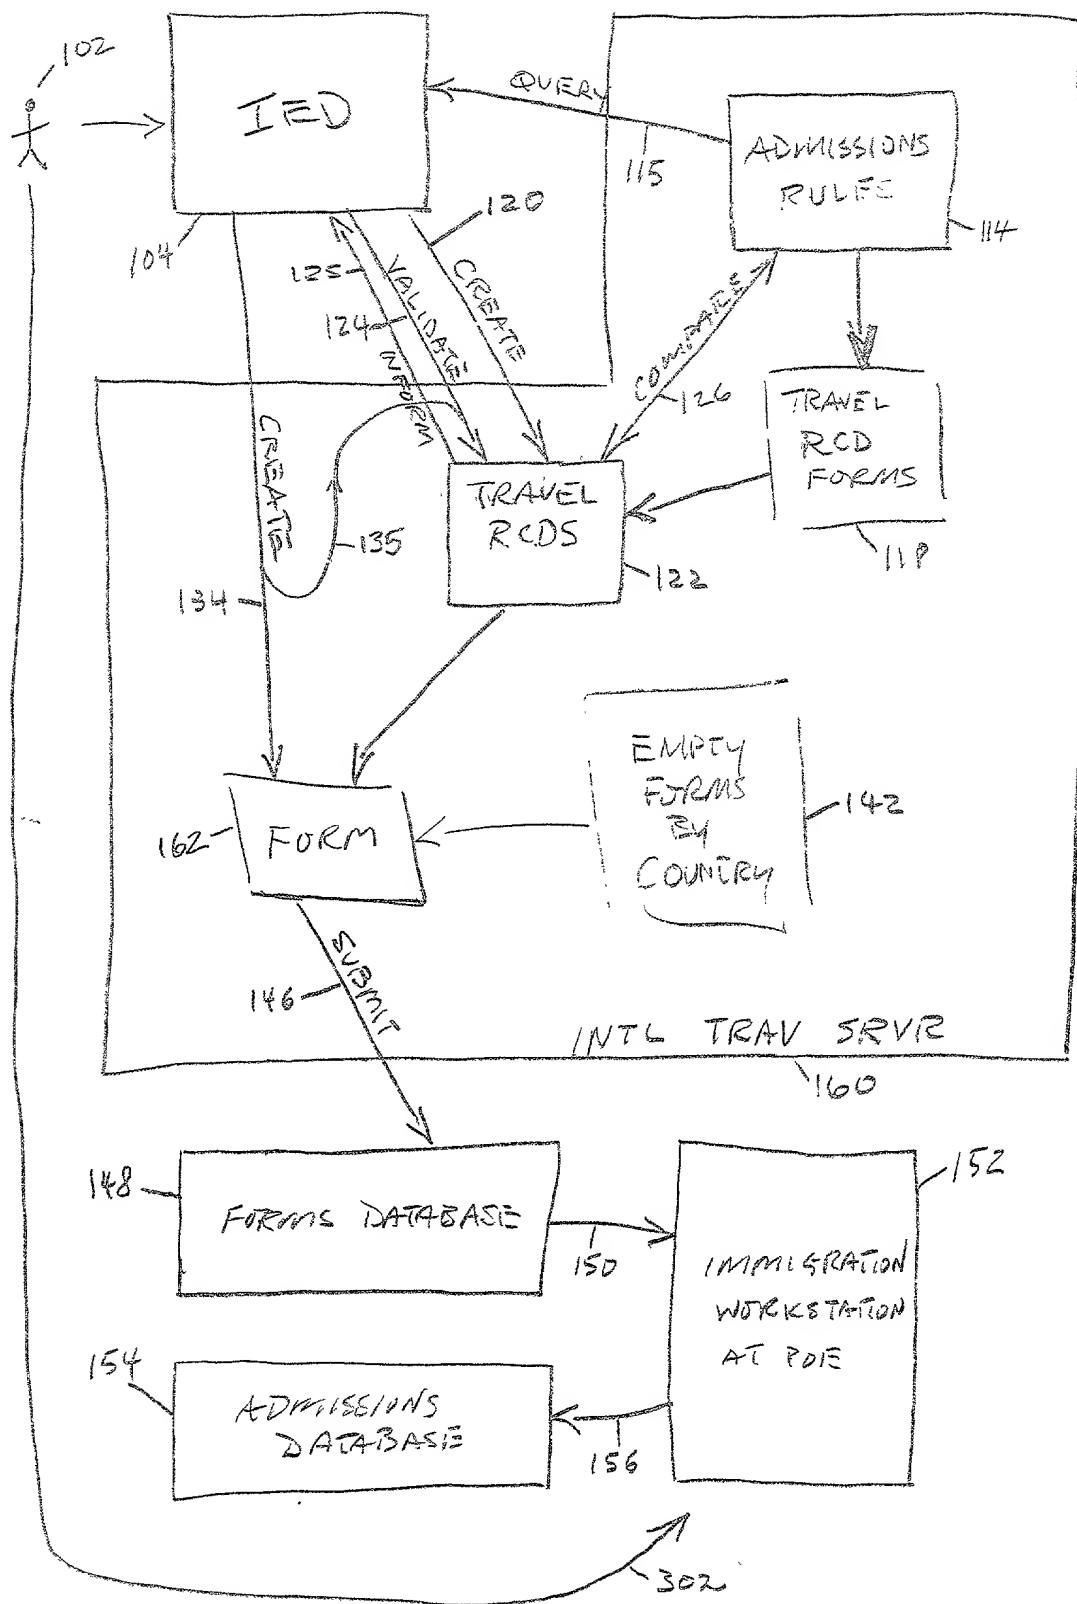 102
IED
QUERY
115
ADMISSIONS
RULES
114
104
120
CREATE
125
VALIDATE
124
INFORM
COMPARE
126
TRAVEL
RCD
FORMS
118
CREATE
135
TRAVEL
RCDS
122
134
162
FORM
EMPTY
FORMS
BY
COUNTRY
142
SUBMIT
146
INTL TRAV SRVR
160
148
FORMS DATABASE
150
152
IMMIGRATION
WORKSTATION
AT POE
154
ADMISSIONS
DATABASE
156
302